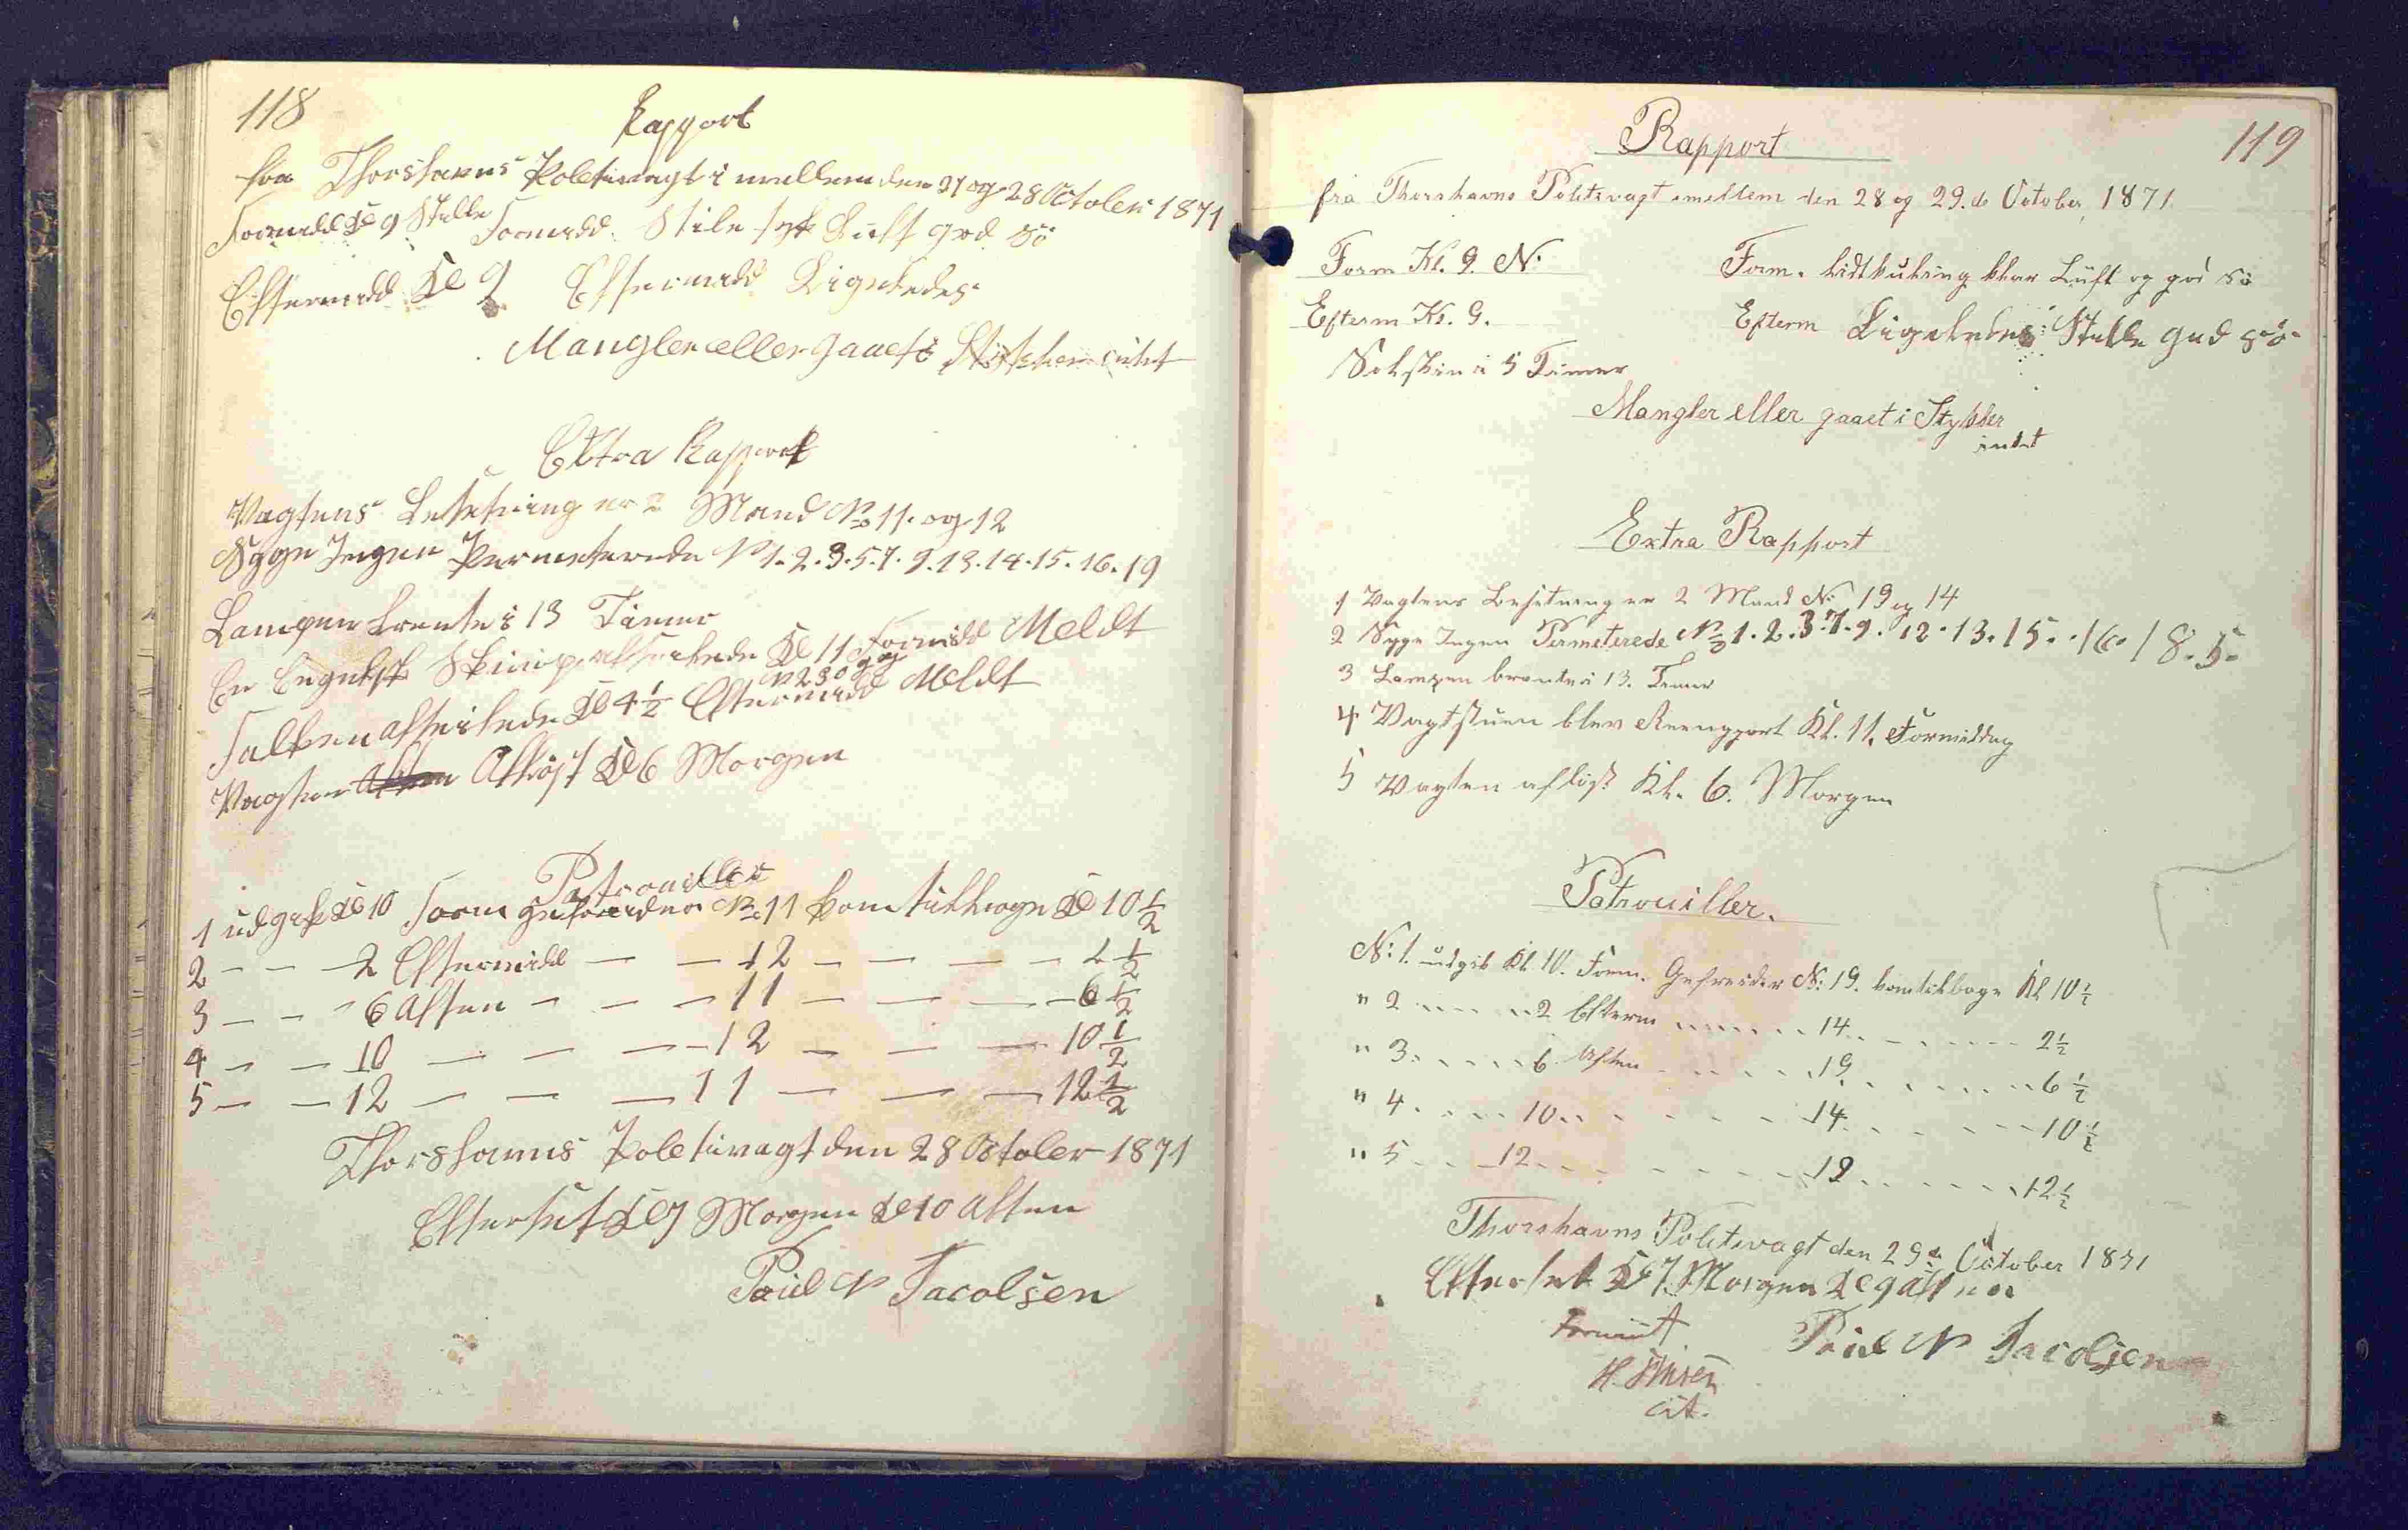 118
Rapport
fra Thorshavns Politivagt i mellem den 27 og 28 October 1871
Formidd Kl 9 Stille Formidd. Stile tyk Luft god Sö
Eftermidd Kl 9 Eftermidd Ligeledes
Mangler eller gaaet i Stÿkker intet
Extra Rapport
Vagtens Besetning er 2 Mand No 11. og 12
Syge Ingen Permeterede N 1. 2. 3. 5. 7. 9. 13. 14. 15. 16. 19
Lampen brente i 13 Timer
En Engelsk Skinip afseilede Kl 11 Formidd Meldt
Falken afseilede Kl 4½ Eftermidd Meldt
Vagten Afløst Kl 6 Morgen
Patrouiller
1 udgik Kl 10 Form Gefreider No 11 kom tilbage Kl 10½
2 — — 2 Eftermidd — — 12 — — — — 2½
3 — — 6 Aften — — — 11 — — — — 6½
4 — — 10 — — — — 12 — — — 10½
5 — — 12 — — — 11 — — — 12½
Thorshavns Politivagt den 28 October 1871
Efterset Kl 7 Morgen Kl 10 Aften
Poul N Jacobsen
119
Rapport
fra Thorshavns Politivagt imellem den 28 og 29. de October, 1871
Form Kl. 9. N: Form. lidt kuling klar Luft og god Sö
Efterm Kl. 9. Efterm Ligeledes Stille god Sö
Solskin i 5 Timer
Mangler eller gaaet i Stykker
intet
Extra Rapport
1 Vagtens Besetning er 2 Mand No 19 og 14
2 Syge Ingen Permeterede No 1. 2. 3. 7. 9. 12. 13. 15. 16. 18. 5.
3 Lampen brente i 13. Timer
4 Vagtstuen blev Reengjort Kl. 11. Formiddag
5 Vagten afløst Kl. 6. Morgen
Patrouiller.
N: 1. udgik Kl 10. Form. Gefreider N: 19. kom tilbage Kl 10½
" 2 . . . . . . 2 Efterm . . . . . . 14. . . . . . . . 2½
" 3. . . . . 6. Aften . . . . . . 19. . . . . . . . 6½
" 4. . . . 10. . . . . . . . 14. . . . . . . 10½
" 5 . . . 12. . . . . . . . 19. . . . . . . 12½
Thorshavns Politivagt den 29de October 1871
Efterset Kl 7. Morgen Kl 9 Aften
Poul N Jacobsen